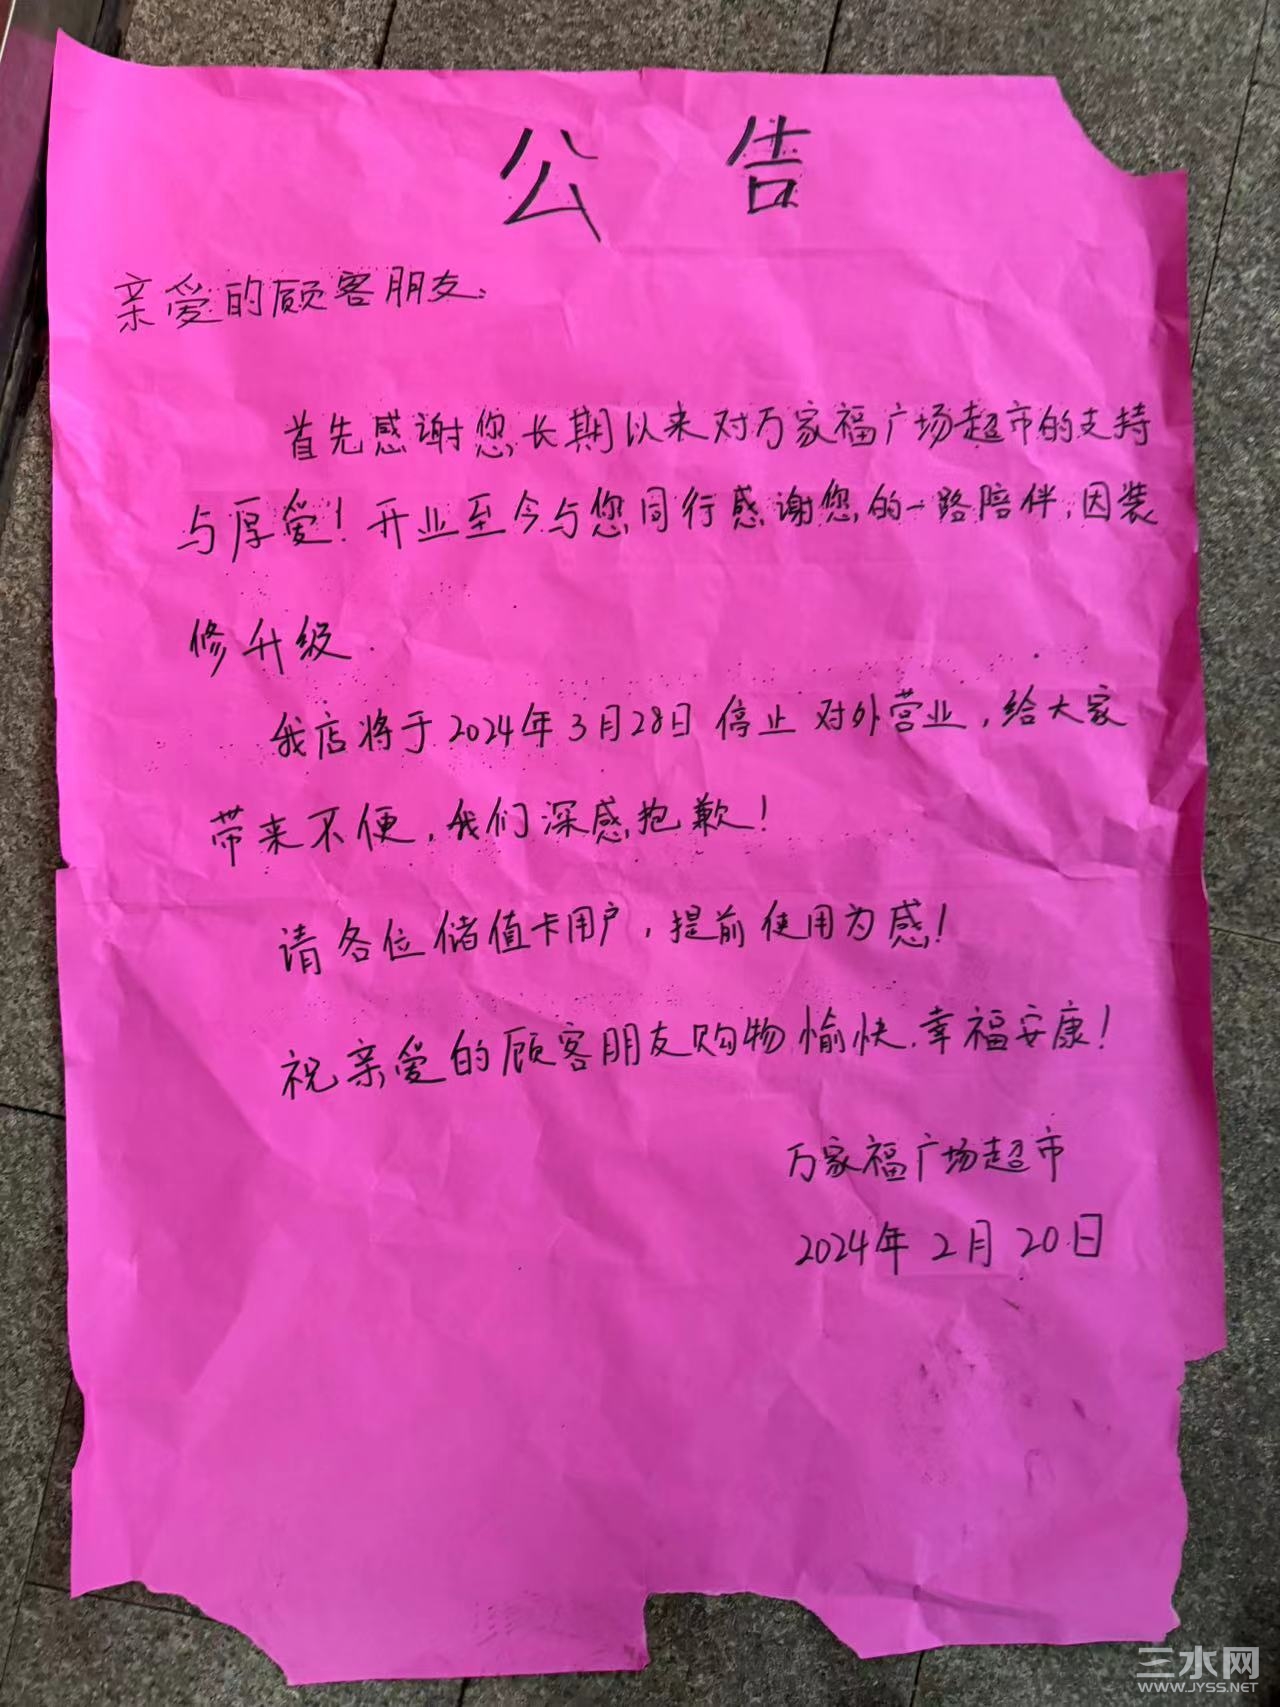 公告
亲爱的顾客朋友:
首先感谢您长期以来对万家福广场超市的支持
与厚爱!开业至今与您同行感谢您的一路陪伴,因装
修升级.
我店将于2024年3月28日停止对外营业,给大家
带来不便,我们深感抱歉!
请各位储值卡用户,提前使用为感!
祝亲爱的顾客朋友购物愉快.幸福安康!
万家福广场超市
2024年2月20日
三水网
WWW.JYSS.NET